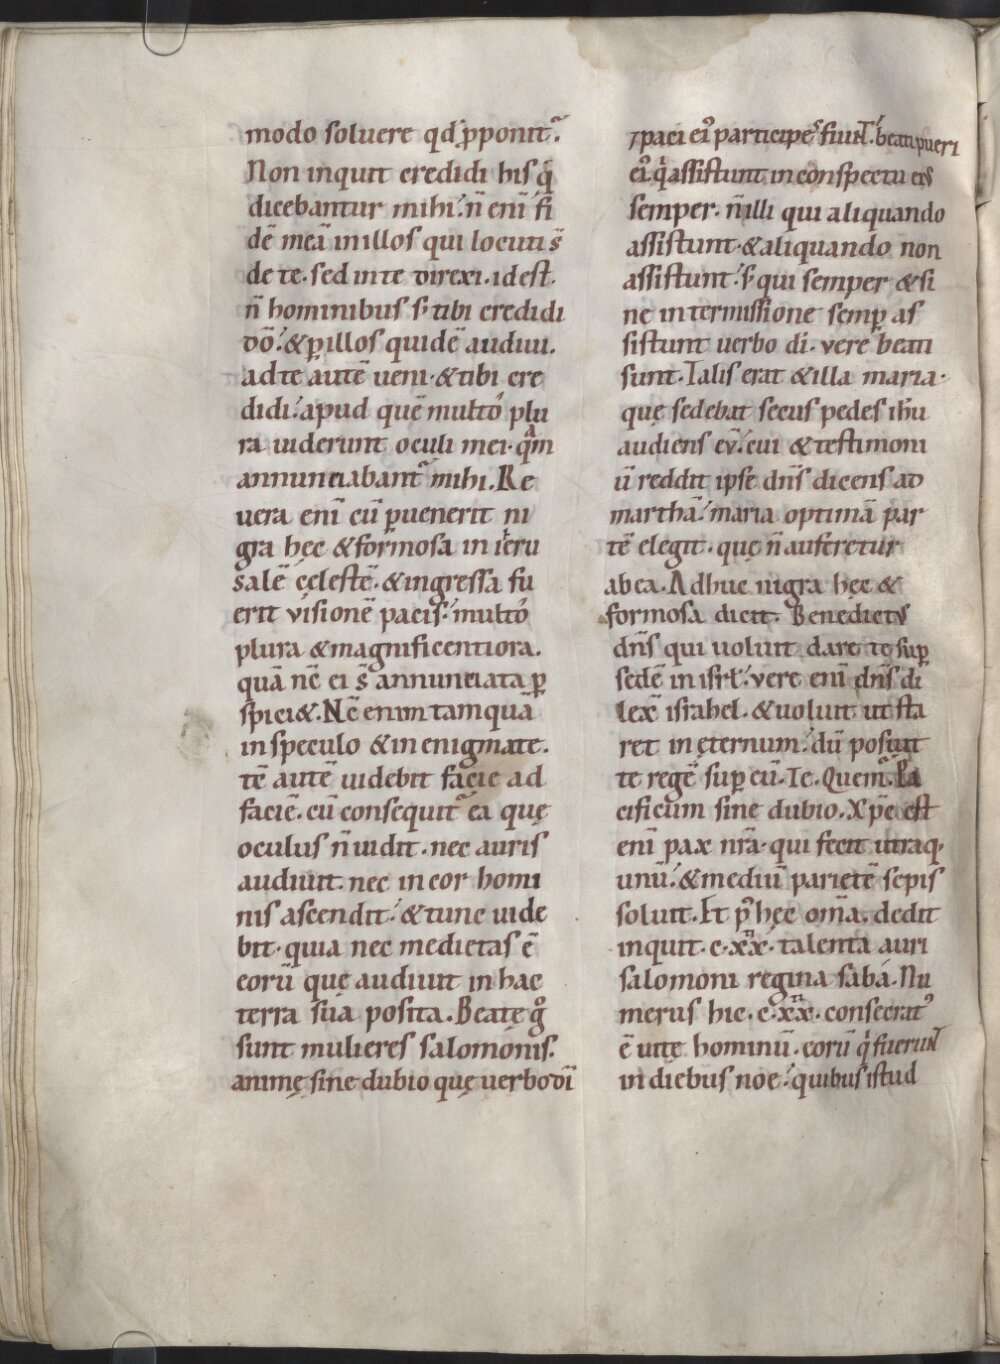 modo soluere qd̄ ꝓponit᷑.
Non inquit credidi his q̇
dicebantur mihi. n̄ enī fi
dē meā in illos qui locuti s̄
de te. sed in te direxi. idest.
n̄ hominibus s; tibi credidi
dō. & ꝑ illos quidē audiui.
ad te autē ueni. & tibi cre
didi. apud quē multo plu
ra uiderunt oculi mei. qm̄
annunciabant᷑ mihi. Re
uera enī cū ꝑuenerit ni
gra hęc & formosa in ieru
salē cęlestē. & ingressa fu
erit visionē pacis. multo
plura & magnificentiora.
quā nē ei s̄ annunciata ꝑ
spiciet. Nē enim tamquā
in speculo & in enigmate.
tē autē uidebit facie ad
faciē. cū consequit᷑ ea quę
oculus n̄ uidit. nec auris
audiuit. nec in cor homi
nis ascendit. & tunc uide
bit. quia nec medietas ē
eorū quę audiuit in hac
terra sua posita. Beatę g̊
sunt mulieres salomonis.
animę sine dubio quę uerbo dī
⁊ paci ei᷒ participes fiunt. beati pueri
ei᷒. q̇ assistunt in conspectu eius
semper. n̄ illi qui aliquando
assistunt. & aliquando non
assistunt. s; qui semper & si
ne intermissione semꝑ as
sistunt uerbo di. vere beati
sunt. Talis erat & illa maria.
quę sedebat secus pedes ihu
audiens eū. cui & testimoni
ū reddit ipse dn̄s dicens ad
marthā. maria optimā par
tē elegit. quę n̄ auferetur
ab ea. Adhuc nigra hęc &
formosa dicit. Benedictus
dn̄s qui uoluit dare te suꝑ
sedē in isrl̄. vere enī dn̄s di
lex̄ israhel. & uoluit ut sta
ret in ęternum. dū posuit
te regē suꝑ eū. Te. Quem᷑. Pa
cificum sine dubio. Xp̄c est
enī pax nr̄a. qui fecit utraq.
unū. & mediū parietē sepis
soluit. Et p᷒ hęc om̄a. dedit
inquit. c. xx̄. talenta auri
salomoni regina saba. Nu
merus hic. c. xx̄. consecrat᷒
ē uitę hominū. eorū q̇ fuerunt
in diebus noe. quibus istud